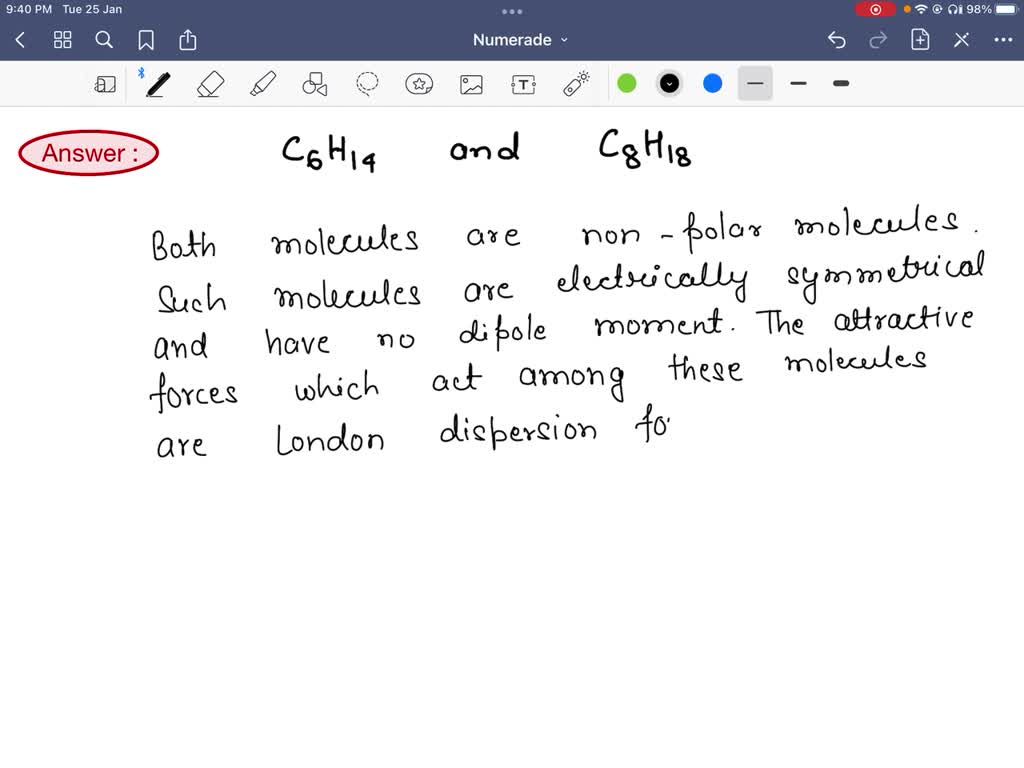 9:40 PM Tue 25 Jan 98%
Numerade
T
Answer :
C6H14 and C8H18
Both molecules are non-polar molecules.
Such molecules are electrically symmetrical
and have no dipole moment. The attractive
forces which act among these molecules
are London dispersion fo